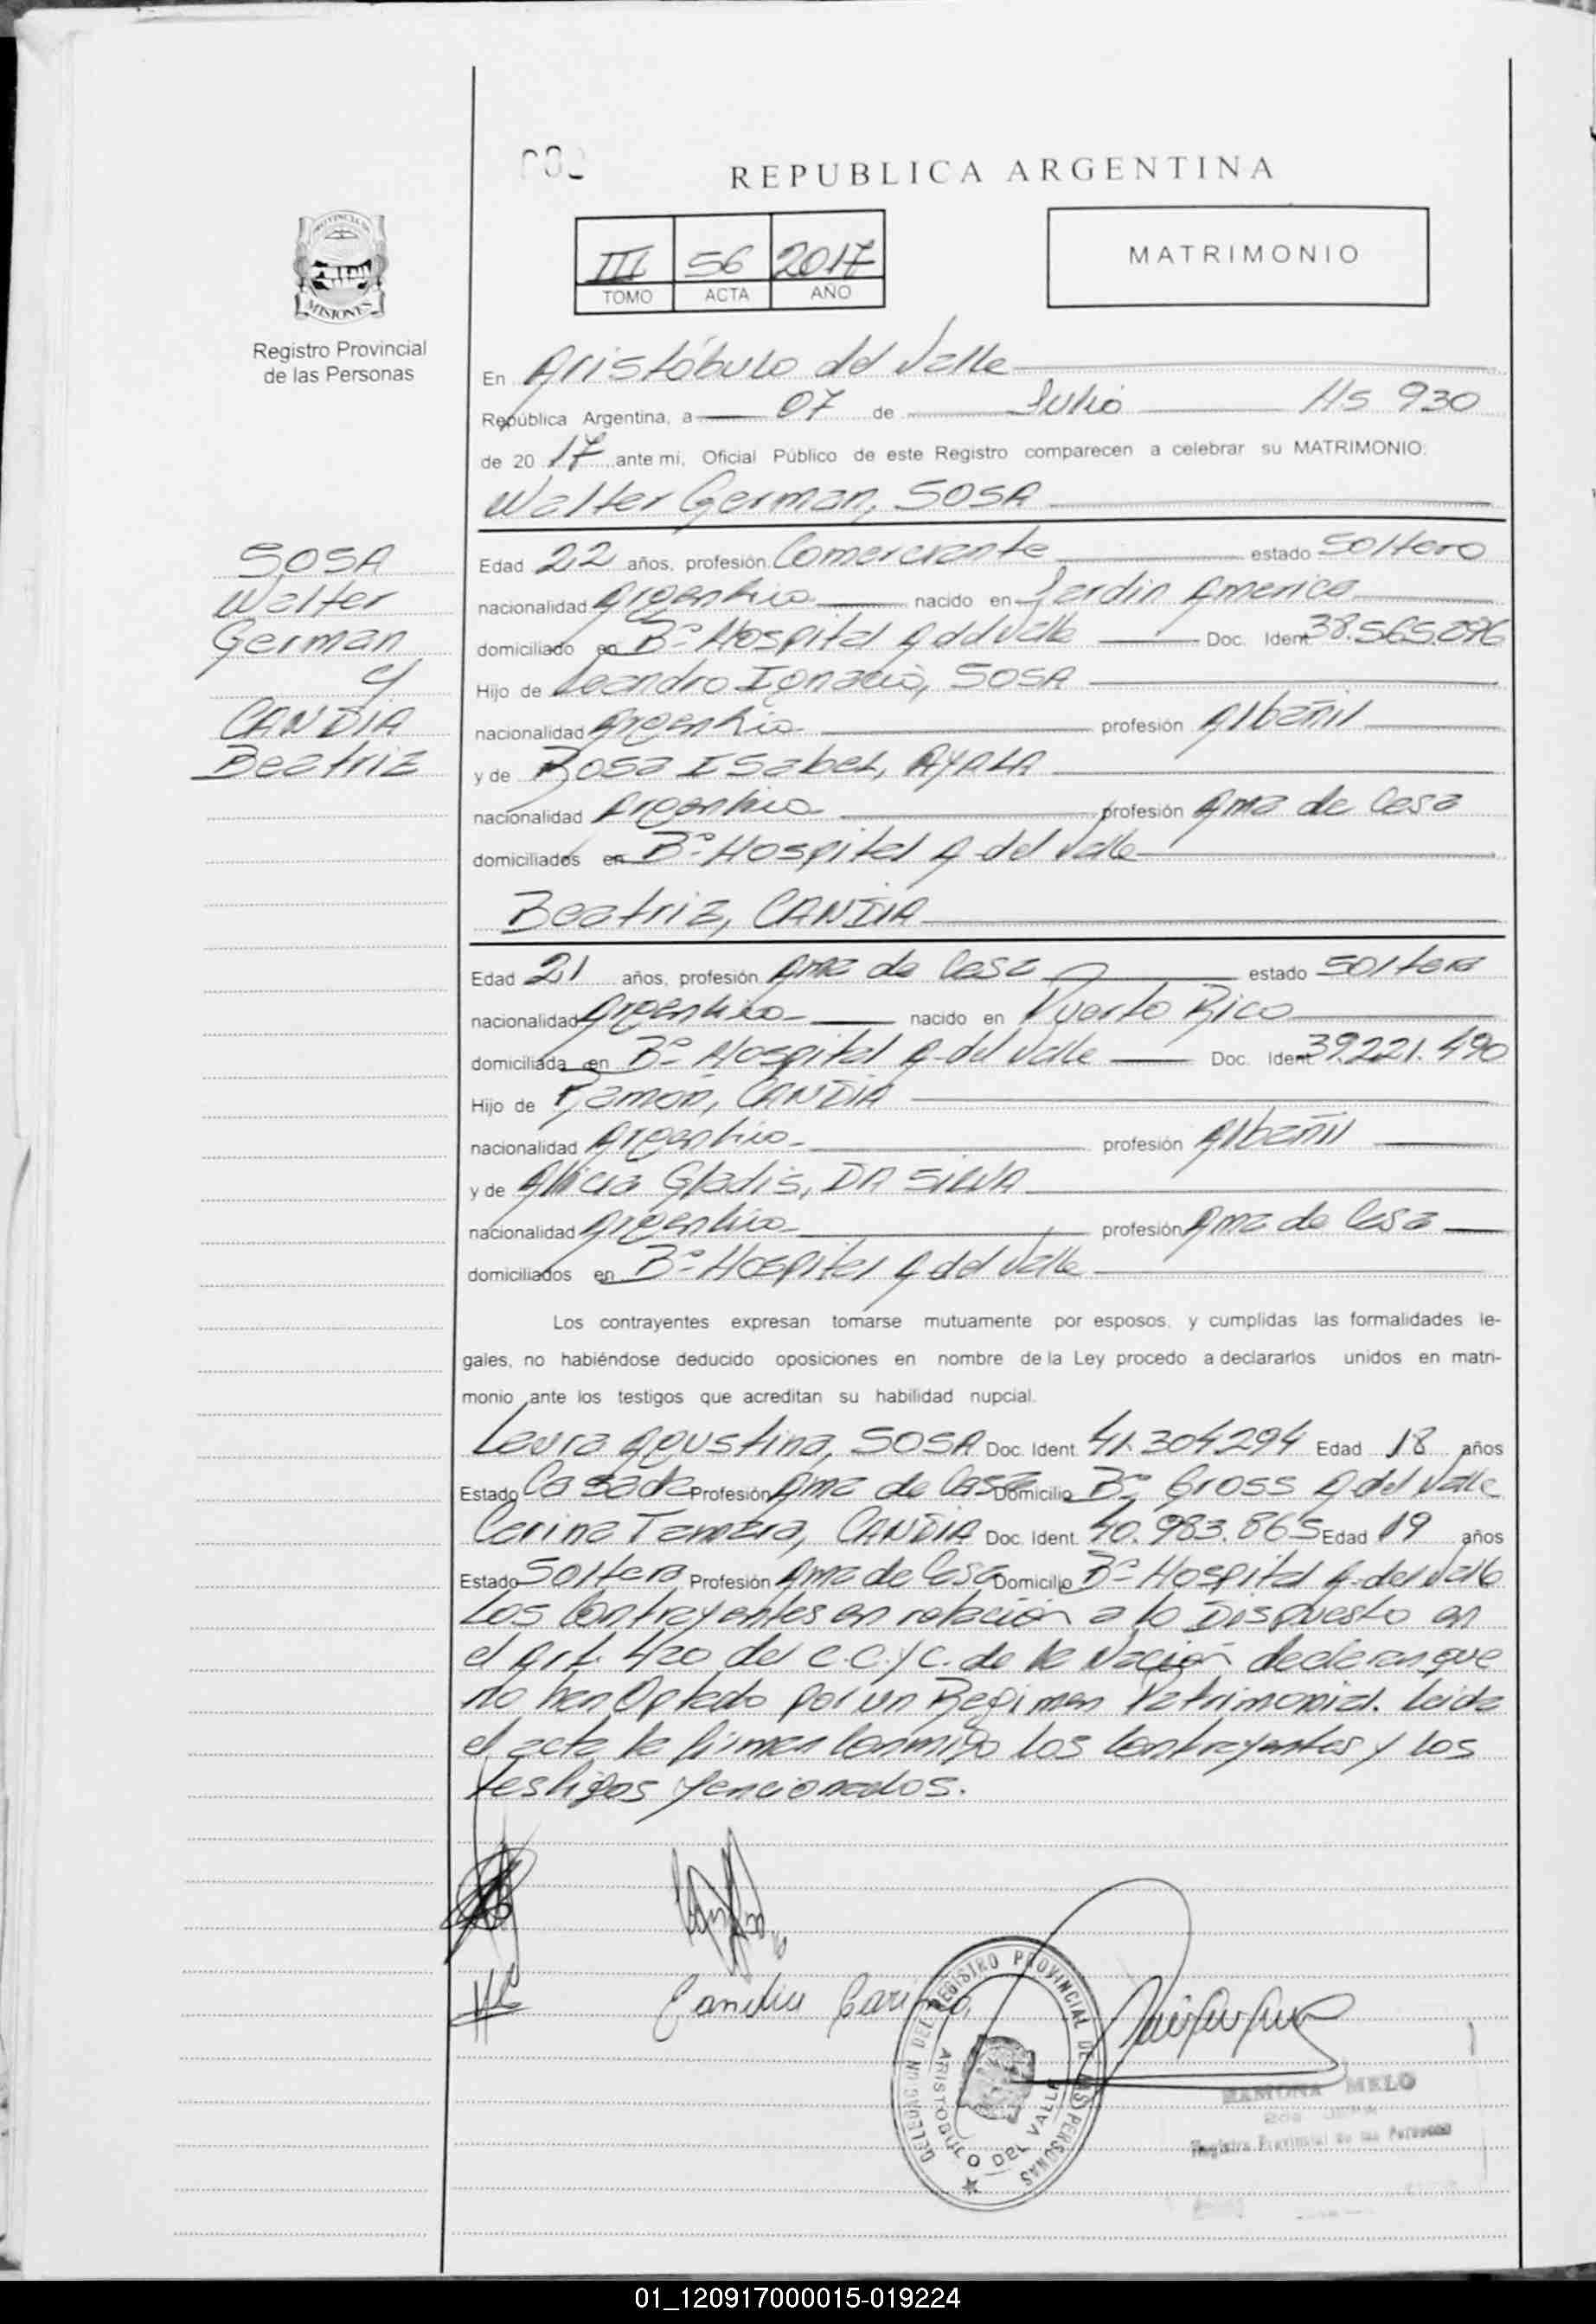 REPUBLICA ARGENTINA
III 56 2017
TOMO ACTA AÑO
MATRIMONIO
PROVINCIA DE
MISIONES
Registro Provincial
de las Personas
En Aristóbulo del Valle
República Argentina, a 07 de Julio Hs 930
de 2017 ante mi, Oficial Público de este Registro comparecen a celebrar su MATRIMONIO:
Walter German, SOSA
SOSA
Walter
German
y
CANDIA
Beatriz
Edad 22 años, profesión Comerciante estado Soltero
nacionalidad Argentina nacido en Jardin America
domiciliado en Bº Hospital A del Valle Doc. Ident. 38.565.
Hijo de Leandro Ignacio, SOSA
nacionalidad Argentina profesión Albañil
y de Rosa Isabel, AYALA
nacionalidad Argentina profesión Ama de Casa
domiciliados en Bº Hospital A del Valle
Beatriz, CANDIA
Edad 21 años, profesión Ama de Casa estado Soltera
nacionalidad Argentina nacido en Puerto Rico
domiciliada en Bº Hospital A del Valle Doc. Ident. 39.221.490
Hijo de Ramón, CANDIA
nacionalidad Argentina profesión Albañil
y de Alicia Gladis, DA SILVA
nacionalidad Argentina profesión Ama de Casa
domiciliados en Bº Hospital A del Valle
Los contrayentes expresan tomarse mutuamente por esposos, y cumplidas las formalidades le-
gales, no habiéndose deducido oposiciones en nombre de la Ley procedo a declararlos unidos en matri-
monio ante los testigos que acreditan su habilidad nupcial.
Laura Agustina, SOSA Doc. Ident. 41.304294 Edad 18 años
Estado Casada Profesión Ama de Casa Domicilio Bº Gross A del Valle
Carina Tamara, CANDIA Doc. Ident. 40.983.865 Edad 19 años
Estado Soltera Profesión Ama de Casa Domicilio Bº Hospital A del Valle
Los Contrayentes en relación a lo Dispuesto en
el Art. 420 del C.C.y C. de la Nación declaran que
no han Optado por un Regimen Patrimonial. Leida
el acta la firman Conmigo los Contrayentes y los
testigos mencionados.
Candia Carina
DELEGACION DEL REGISTRO PROVINCIAL DE LAS PERSONAS
ARISTOBULO DEL VALLE
RAMONA MELO
Registro Provincial de las Personas
01_120917000015-019224